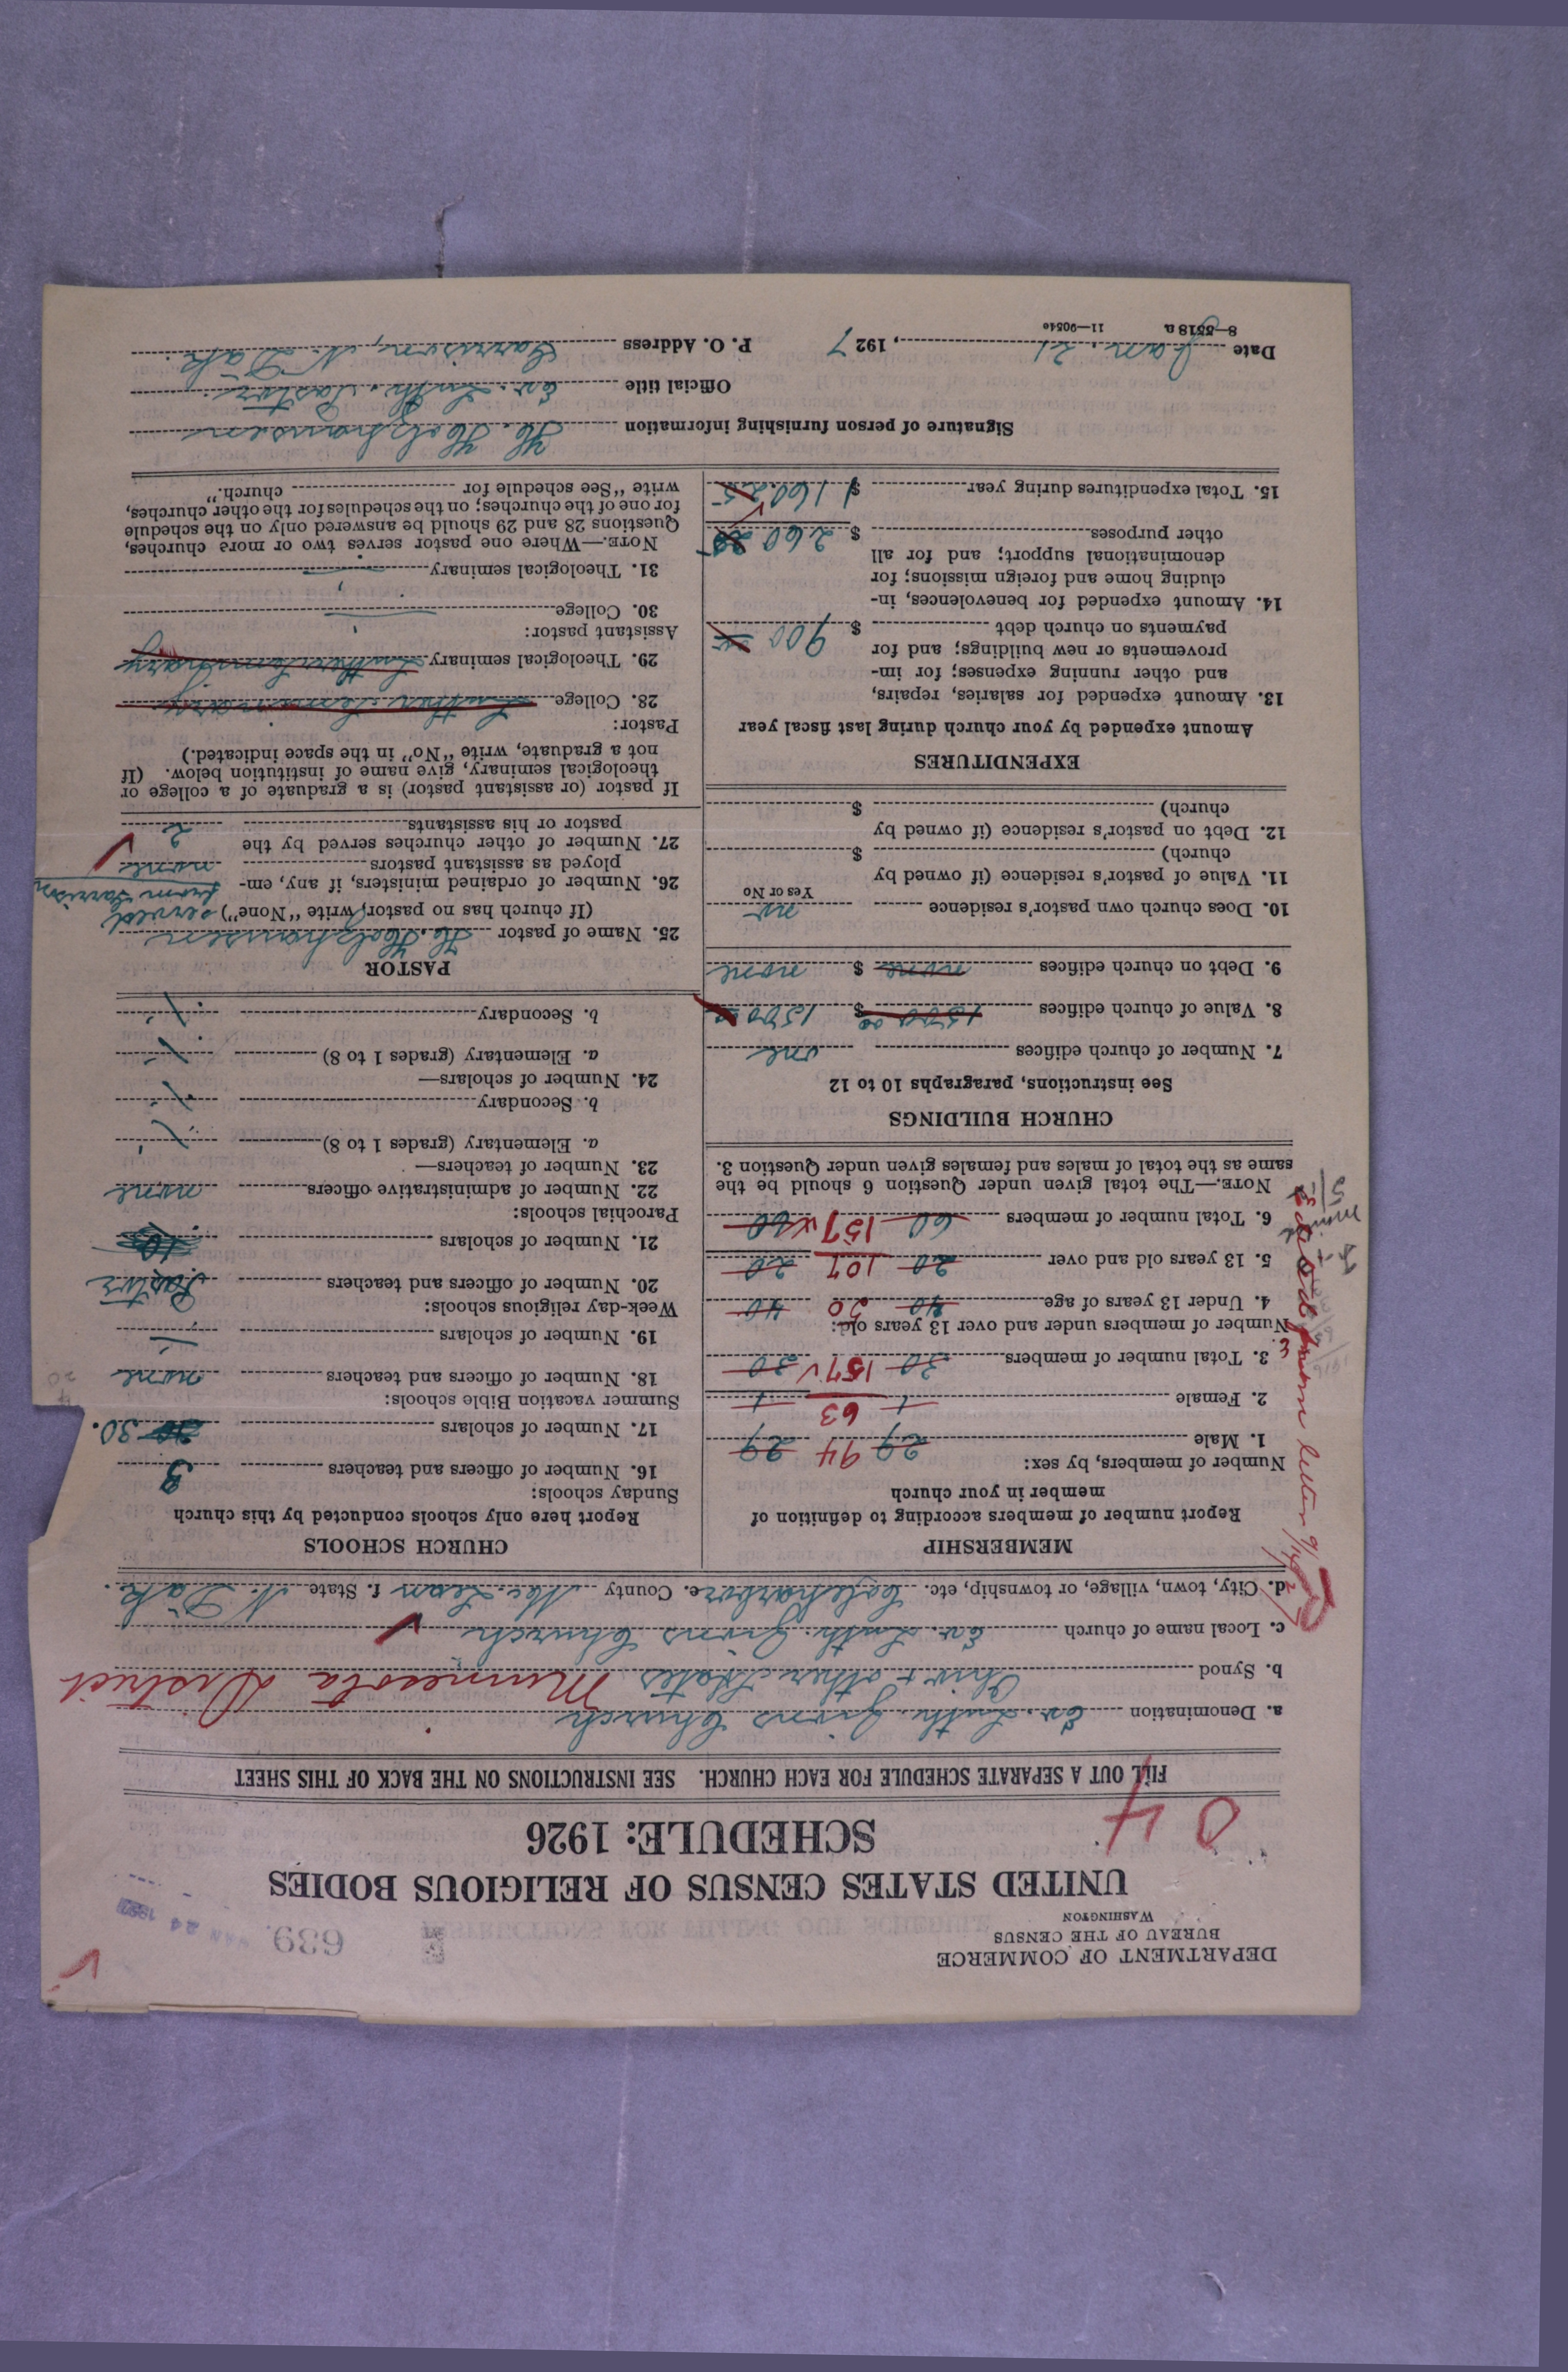 DEPARTMENT OF COMMERCE
BUREAU OF THE CENSUS
WASHINGTON
639
JAN 24 1927
UNITED STATES CENSUS OF RELIGIOUS BODIES
SCHEDULE: 1926
0 4
FILL OUT A SEPARATE SCHEDULE FOR EACH CHURCH. SEE INSTRUCTIONS ON THE BACK OF THIS SHEET
a. Denomination Ev. Luth. Zions Church
b. Synod Ohio & other States Minnesota District
c. Local name of church Ev. Luth. Zions Church
d. City, town, village, or township, etc. Coleharbor e. County Mc Lean f. State N. Dak.
MEMBERSHIP
Report number of members according to definition of
member in your church
Number of members, by sex:
1. Male 29 94 29
2. Female 1 63 1
3. Total number of members 30 157 30
Number of members under and over 13 years old:
4. Under 13 years of age 40 50 40
5. 13 years old and over 20 107 20
6. Total number of members 60 157 60
NOTE.—The total given under Question 6 should be the
same as the total of males and females given under Question 3.
from letter
CHURCH BUILDINGS
See instructions, paragraphs 10 to 12
7. Number of church edifices one
8. Value of church edifices 1500 00 $ 1500 00
9. Debt on church edifices none $ none
10. Does church own pastor's residence no
Yes or No
11. Value of pastor's residence (if owned by
church) $
12. Debt on pastor's residence (if owned by
church) $
EXPENDITURES
Amount expended by your church during last fiscal year
13. Amount expended for salaries, repairs,
and other running expenses; for im-
provements or new buildings; and for
payments on church debt $ 900
14. Amount expended for benevolences, in-
cluding home and foreign missions; for
denominational support; and for all
other purposes $ 260
15. Total expenditures during year $ 1160.25
CHURCH SCHOOLS
Report here only schools conducted by this church
Sunday schools:
16. Number of officers and teachers 3
17. Number of scholars 30.
Summer vacation Bible schools:
18. Number of officers and teachers none
19. Number of scholars
Week-day religious schools:
20. Number of officers and teachers Pastor
21. Number of scholars
Parochial schools:
22. Number of administrative officers none
23. Number of teachers—
a. Elementary (grades 1 to 8)
b. Secondary
24. Number of scholars—
a. Elementary (grades 1 to 8)
b. Secondary
PASTOR
25. Name of pastor H. Holzhausen
(If church has no pastor, write "None") served
from Garrison
26. Number of ordained ministers, if any, em-
ployed as assistant pastors none
27. Number of other churches served by the
pastor or his assistants 2
If pastor (or assistant pastor) is a graduate of a college or
theological seminary, give name of institution below. (If
not a graduate, write "No" in the space indicated.)
Pastor:
28. College Luther Seminary
29. Theological seminary Luther Seminary
Assistant pastor:
30. College
31. Theological seminary
NOTE.—Where one pastor serves two or more churches,
Questions 28 and 29 should be answered only on the schedule
for one of the churches; on the schedules for the other churches,
write "See schedule for church."
Signature of person furnishing information H. Holzhausen
Official title Ev. Luth. Pastor
Date Jan. 21, 1927 P. O. Address Garrison, N. Dak.
8—5518a 11—9054e